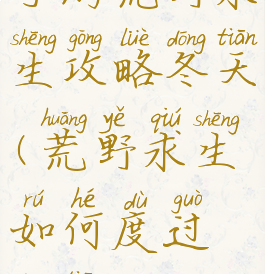 shēng gōng lüè dōng tiān
生攻略冬天
huāng yě qiú shēng
(荒野求生
rú hé dù guò
如何度过